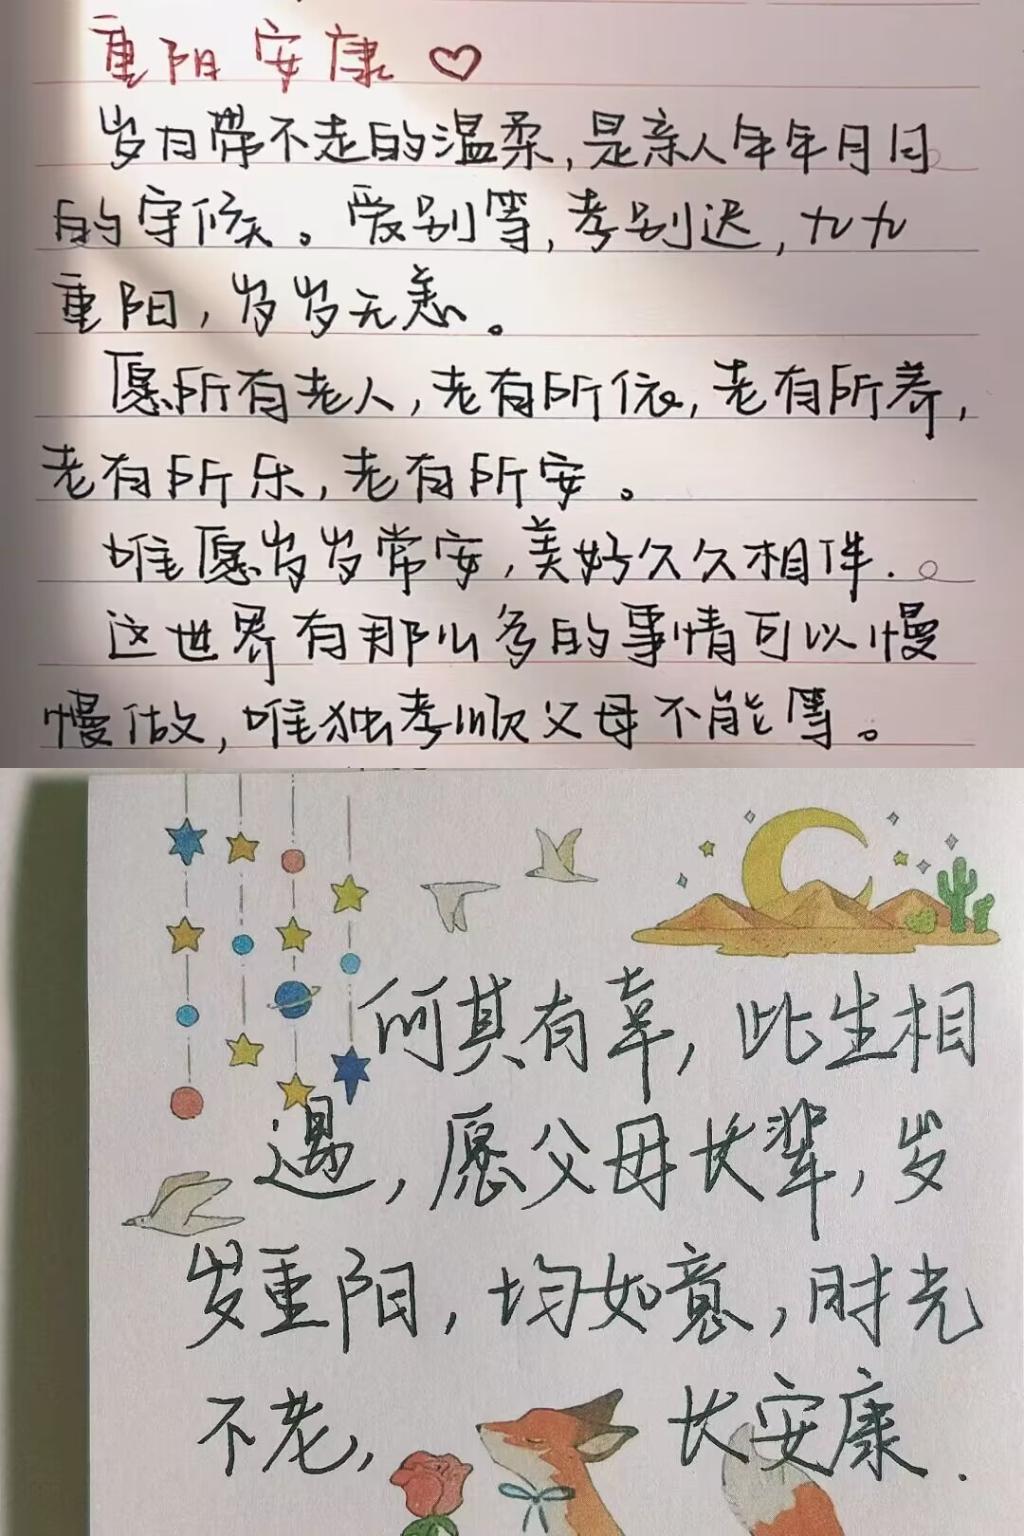 重阳安康
岁月带不走的温柔,是亲人年年月月
的守候。爱别等,孝别迟,九九
重阳,岁岁无恙。
愿所有老人,老有所依,老有所养,
老有所乐,老有所安。
唯愿岁岁常安,美好久久相伴.
这世界有那么多的事情可以慢
慢做,唯独孝顺父母不能等。
何其有幸,此生相
遇,愿父母长辈,岁
岁重阳,均如意,时光
不老,长安康.